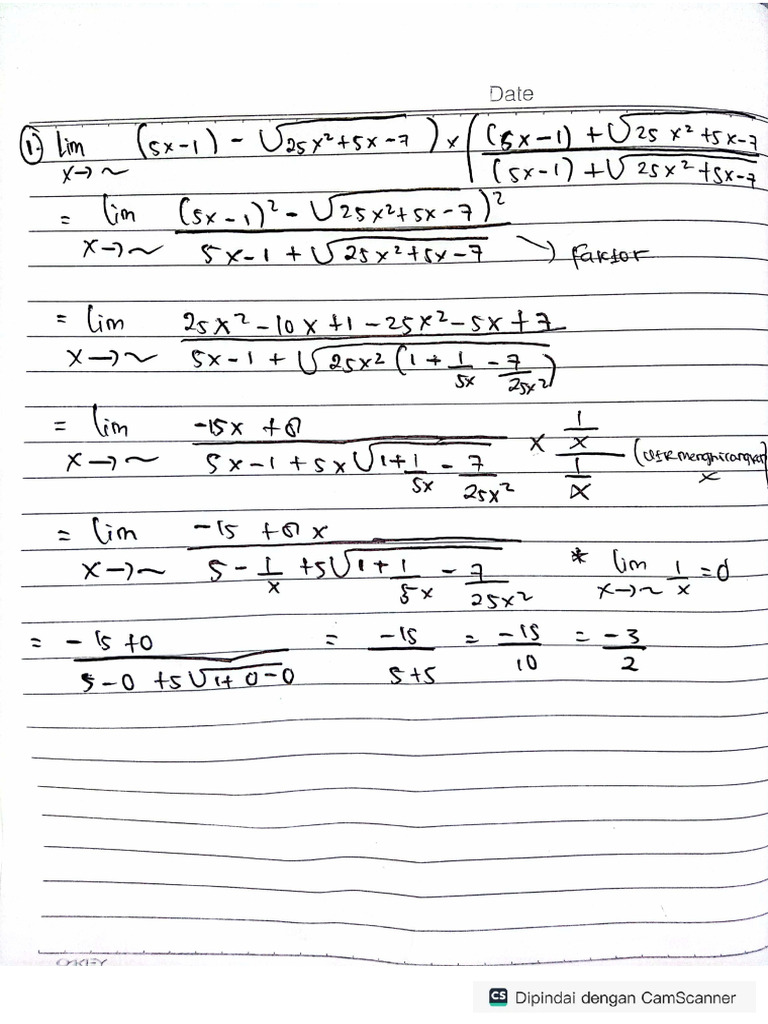 Date
1. lim x→~ (5x-1) - √(25x²+5x-7) ) x ( (5x-1) + √(25x²+5x-7) / (5x-1) + √(25x²+5x-7)
= lim x→~ (5x-1)² - √(25x²+5x-7)² / 5x-1 + √(25x²+5x-7) → faktor
= lim x→~ 25x²-10x+1-25x²-5x+7 / 5x-1 + √(25x²(1 + 1/5x - 7/25x²)
= lim x→~ -15x+8 / 5x-1+5x√(1+1/5x - 7/25x²) x 1/x / 1/x (utk menghilangkan x
= lim x→~ -15 + 8x / 5 - 1/x + 5√(1+1/5x - 7/25x²) * lim x→~ 1/x = 0
= -15+0 / 5-0+5√(1+0-0) = -15 / 5+5 = -15/10 = -3/2
OKEY
CS Dipindai dengan CamScanner